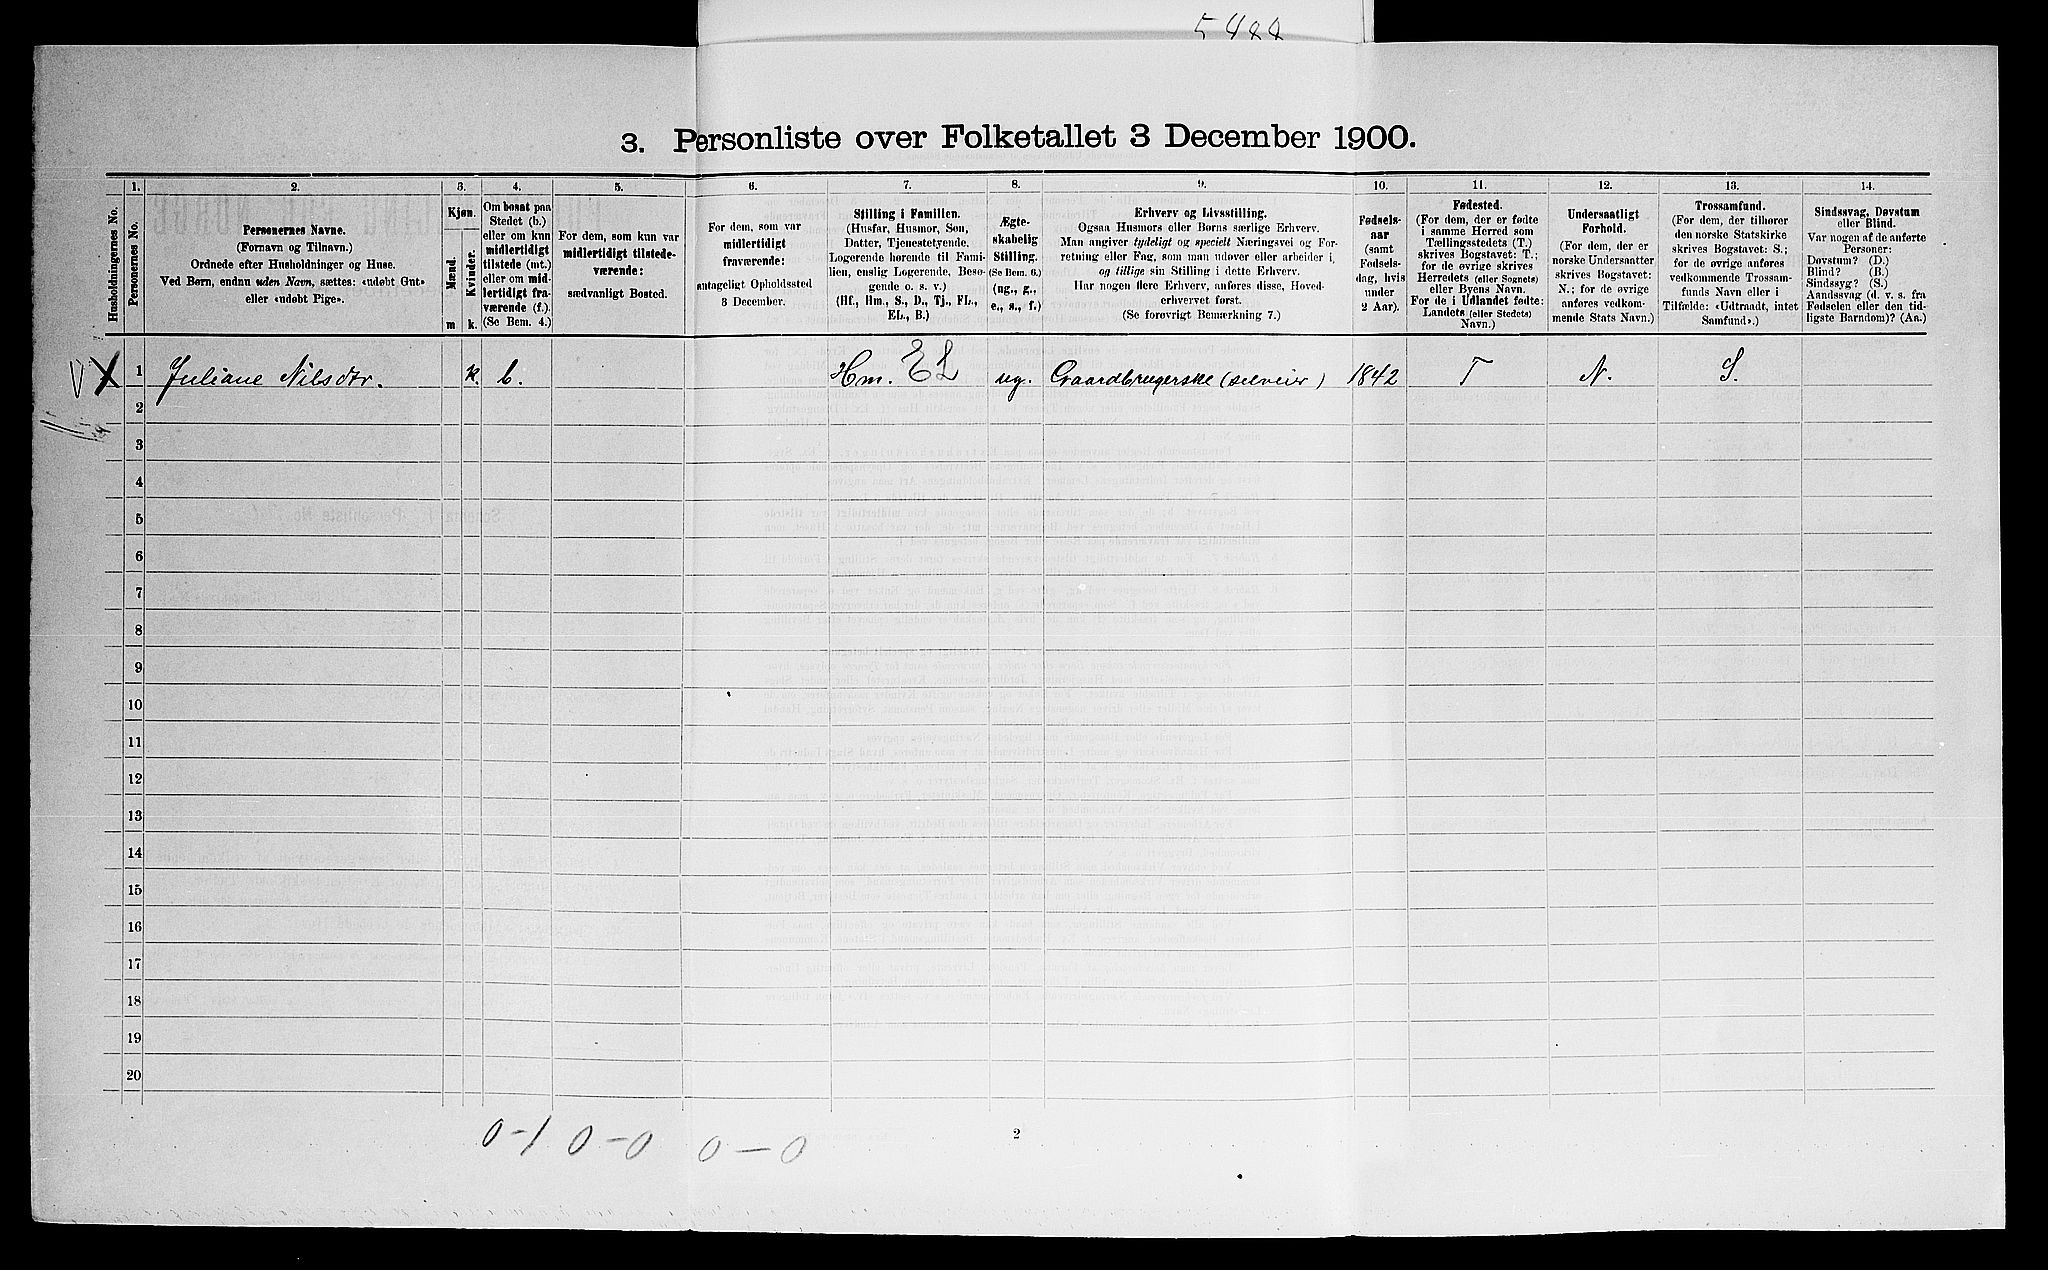 5488
3. Personliste over Folketallet 3 December 1900.
Husholdningernes No.
1.
Personernes No.
2.
Personernes Navne.
(Fornavn og Tilnavn.)
Ordnede efter Husholdninger og Huse.
Ved Børn, endnu uden Navn, sættes: «udøbt Gut»
eller «udøbt Pige».
3.
Kjøn.
Mænd.
Kvinder.
m
k.
4.
Om bosat paa
Stedet (b.)
eller om kun
midlertidigt
tilstede (mt.)
eller om mid-
lertidigt fra-
værende (f.).
(Se Bem. 4.)
5.
For dem, som kun var
midlertidigt tilstede-
værende:
sædvanligt Bosted.
6.
For dem, som var
midlertidigt
fraværende:
antageligt Opholdssted
3 December.
7.
Stilling i Familien.
(Husfar, Husmor, Søn,
Datter, Tjenestetyende,
Logerende hørende til Fami-
lien, enslig Logerende, Besø-
gende o. s. v.)
(Hf., Hm., S., D., Tj., FL.,
EL., B.)
8.
Ægte-
skabelig
Stilling.
(Se Bem. 6.)
(ug., g.,
e., s., f.)
9.
Erhverv og Livsstilling.
Ogsaa Husmors eller Børns særlige Erhverv.
Man angiver tydeligt og specielt Næringsvei og For-
retning eller Fag, som man udøver eller arbeider i,
og tillige sin Stilling i dette Erhverv.
Har nogen flere Erhverv, anføres disse, Hoved-
erhvervet først.
(Se forøvrigt Bemærkning 7.)
10.
Fødsels-
aar
(samt
Fødsels-
dag, hvis
under
2 Aar).
11.
Fødested.
(For dem, der er fødte
i samme Herred som
Tællingsstedets (T.)
skrives Bogstavet: T.;
for de øvrige skrives
Herredets (eller Sognets)
eller Byens Navn.
For de i Udlandet fødte:
Landets (eller Stedets)
Navn.)
12.
Undersaatligt
Forhold.
(For dem, der er
norske Undersaatter
skrives Bogstavet:
N.; for de øvrige
anføres vedkom-
mende Stats Navn.)
13.
Trossamfund.
(For dem, der tilhører
den norske Statskirke
skrives Bogstavet: S.;
for de øvrige anføres
vedkommende Trossam-
funds Navn eller i
Tilfælde: «Udtraadt, intet
Samfund».)
14.
Sindssvag, Døvstum
eller Blind.
Var nogen af de anførte
Personer:
Døvstum? (D.)
Blind? (B.)
Sindssyg? (S.)
Aandssvag (d. v. s. fra
Fødselen eller den tid-
ligste Barndom)? (Aa.)
V X 1 Juliane Nilsdtr. k. b. Hm. EL ug. Gaardbrugerske (selveier) 1842 T N. S.
2
3
4
5
6
7
8
9
10
11
12
13
14
15
16
17
18
19
20
0-1 0-0 0-0
2